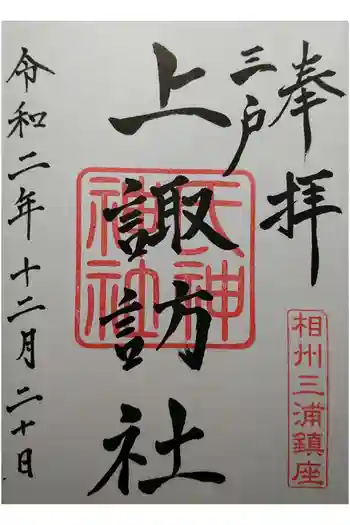 奉拝
三戸
上諏訪社
氏神
神社
相州三浦鎮座
令和二年十二月二十日